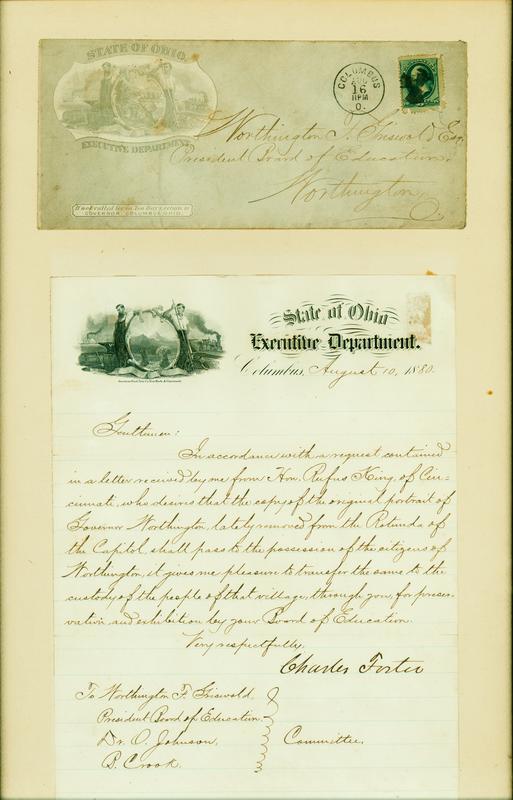 STATE OF OHIO.
EXECUTIVE DEPARTMENT
COLUMBUS
AUG
16
O.
Worthington F. Griswold Esq
President Board of Education
Worthington
O.
If not called for in Ten Days return to
GOVERNOR, COLUMBUS, OHIO.
State of Ohio
Executive Department.
Columbus, August 10, 1880.
Gentlemen:
In accordance with a request contained
in a letter received by me from Hon. Rufus King, of Cin-
cinnati, who desires that the copy of the original portrait of
Governor Worthington, lately removed from the Rotunda of
the Capitol, shall pass to the possession of the citizens of
Worthington, it gives me pleasure to transfer the same to the
custody of the people of that village, through you, for preser-
vation and exhibition by your Board of Education.
Very respectfully,
Charles Foster
To Worthington F. Griswold,
President Board of Education.
Dr. O. Johnson,
Committee.
B. Crook.